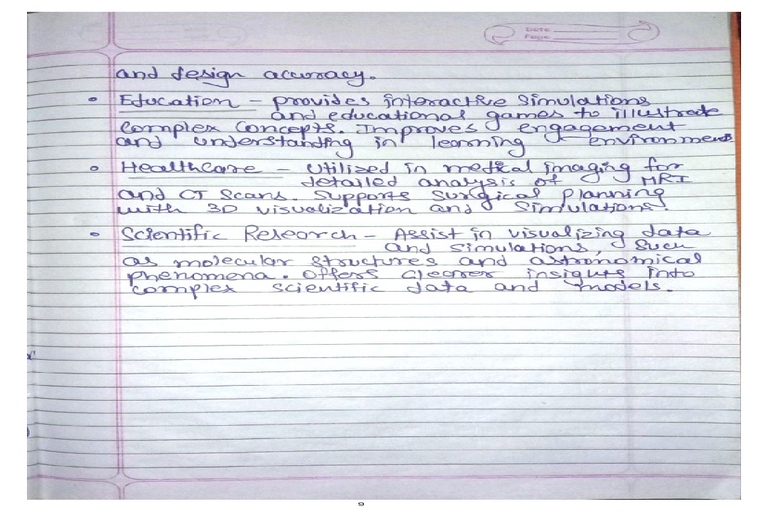 Date
Page
and design accuracy.
• Education – provides interactive simulations
and educational games to illustrate
complex concepts. Improves engagement
and understanding in learning environments
• Healthcare – Utilized in medical imaging for
detailed analysis of MRI
and CT Scans. Supports surgical planning
with 3D visualization and simulations.
• Scientific Research – Assist in visualizing data
and simulations, such
as molecular structures and astronomical
phenomena. Offers clearer insights into
complex scientific data and models.
9